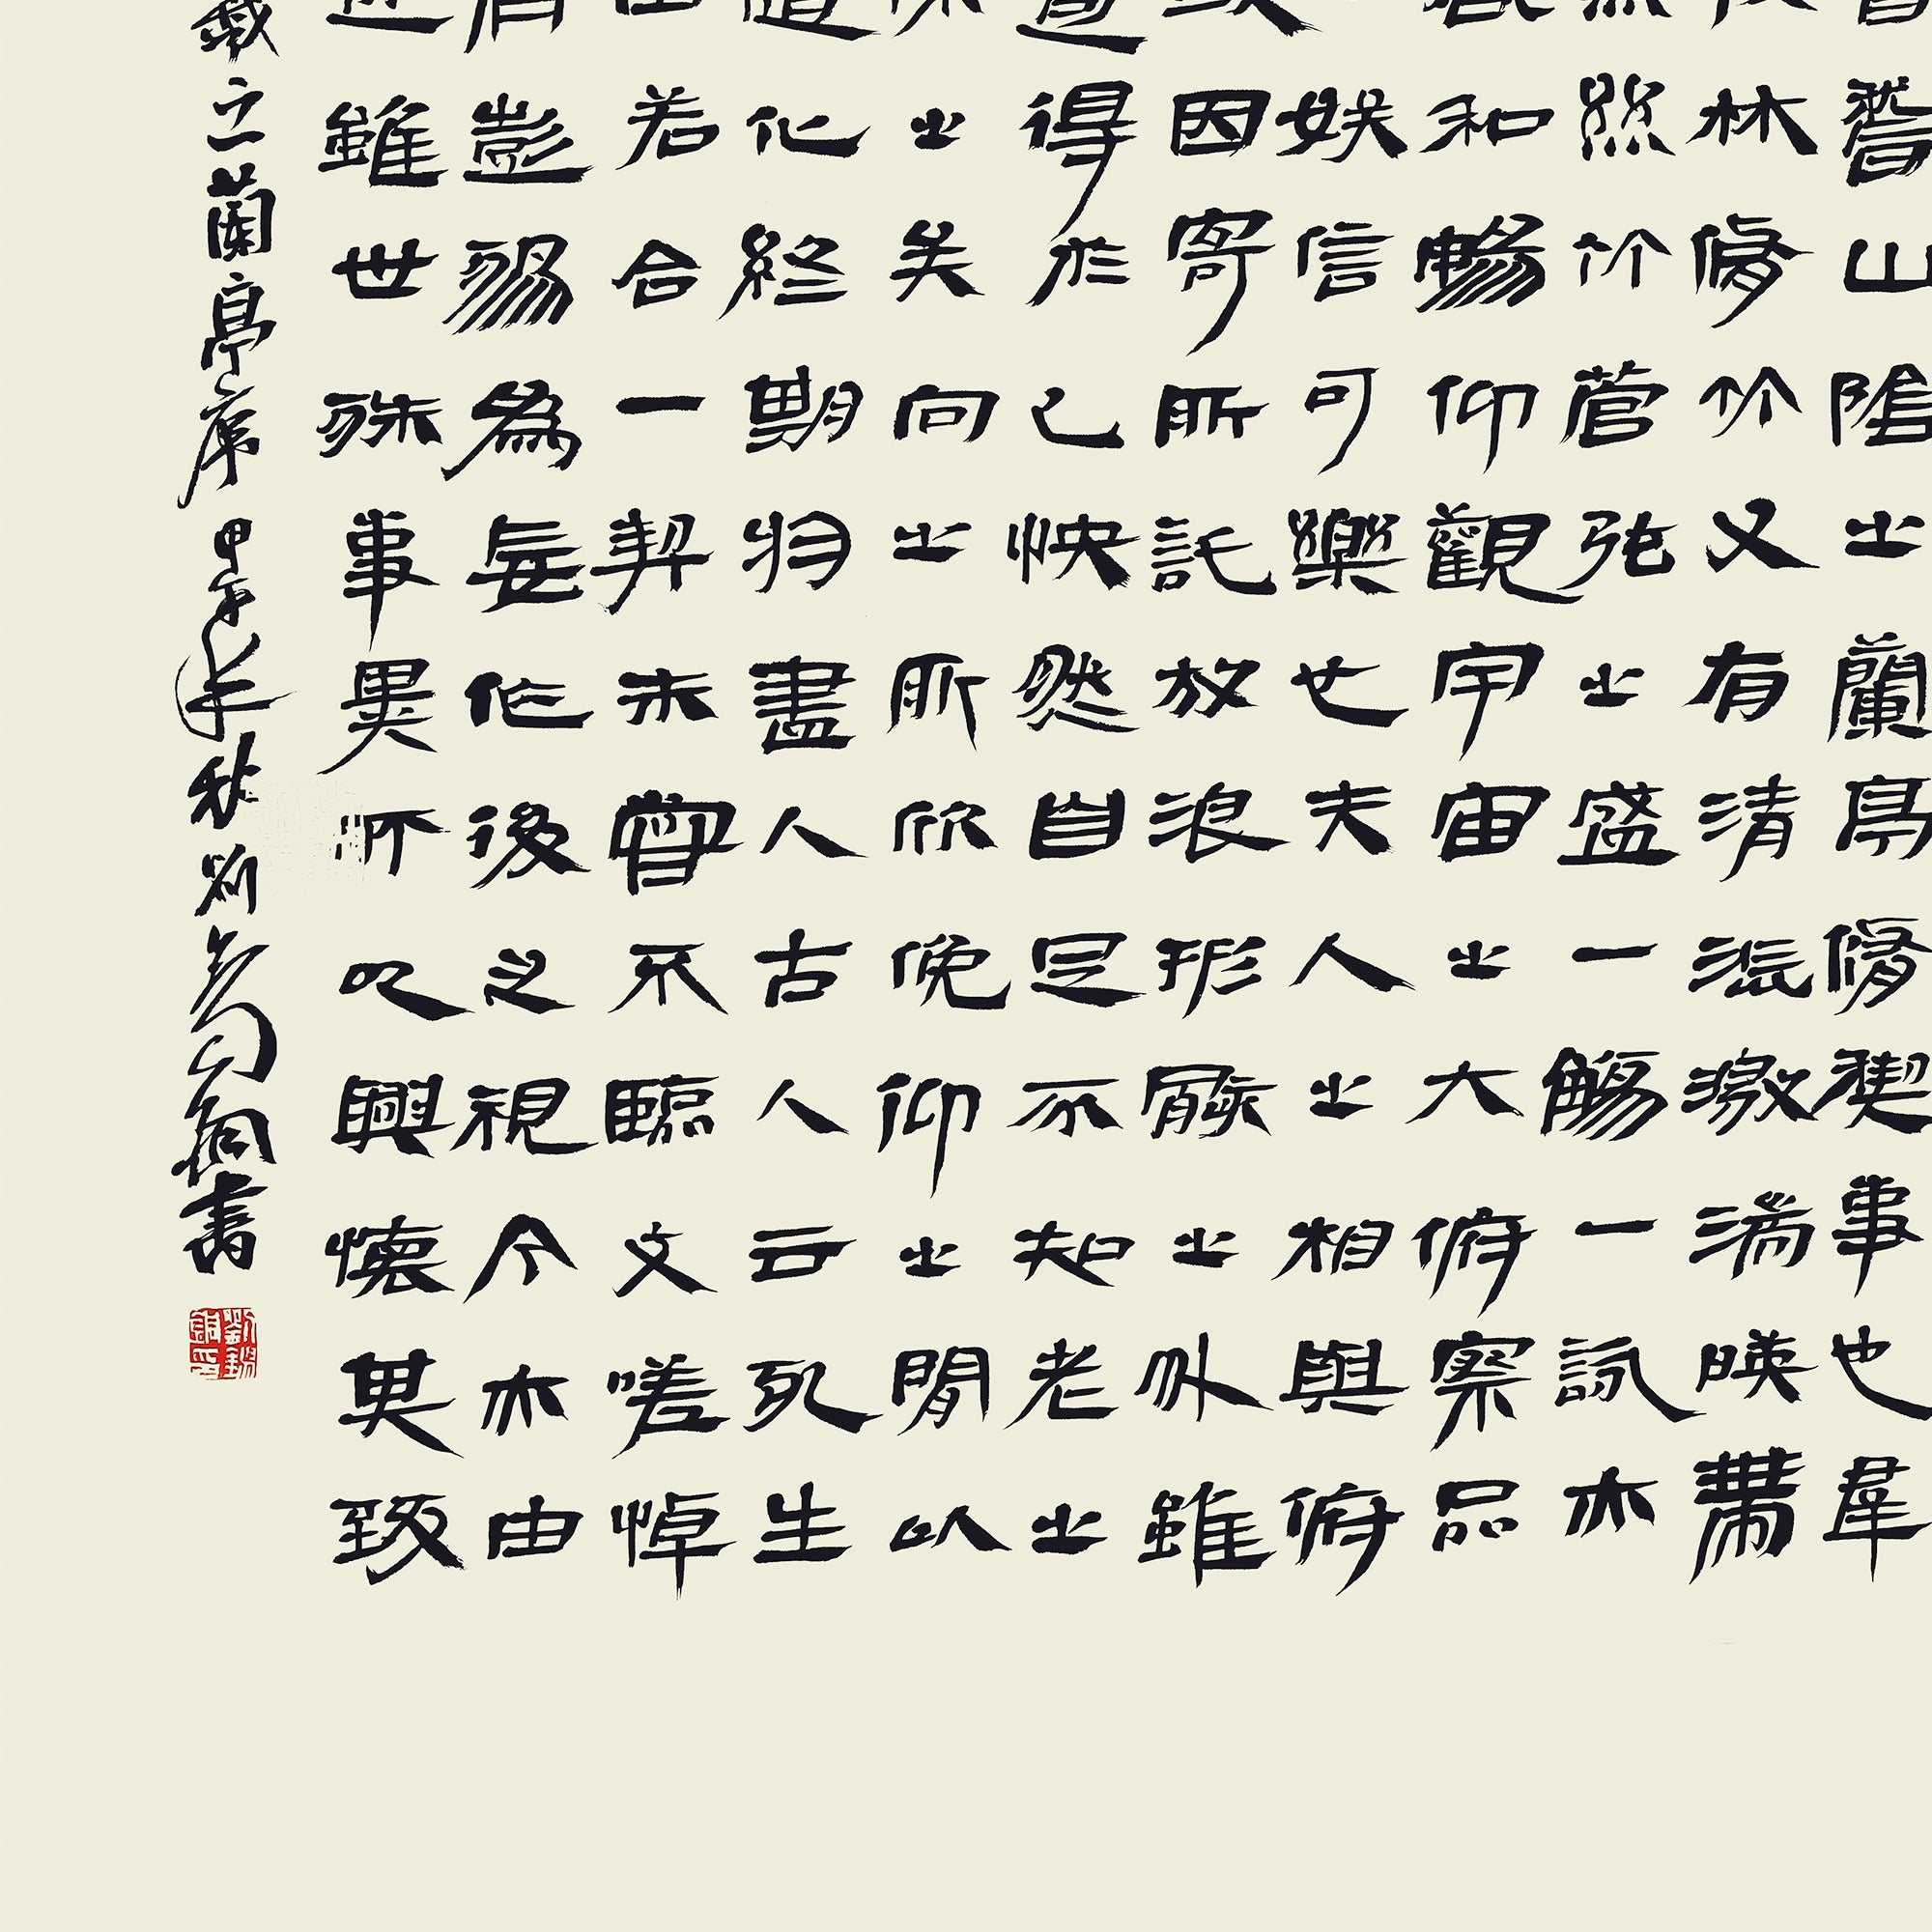 稽山陰之蘭亭脩禊事也群
林脩竹又有清流激湍暎帶
絲竹管弦之盛一觴一詠亦
和暢仰觀宇宙之大俯察品
娛信可樂也夫人之相與俯
因寄所託放浪形骸之外雖
得於己快然自足不知老之
之矣向之所欣俛仰之閒以
化終期归盡人古人云死生
若合一契未嘗不臨文嗟悼
彭殤為妄作後之視今亦由
雖世殊事異所以興懷其致
羲之蘭亭序甲午年秋劉錫銅書
劉錫銅印